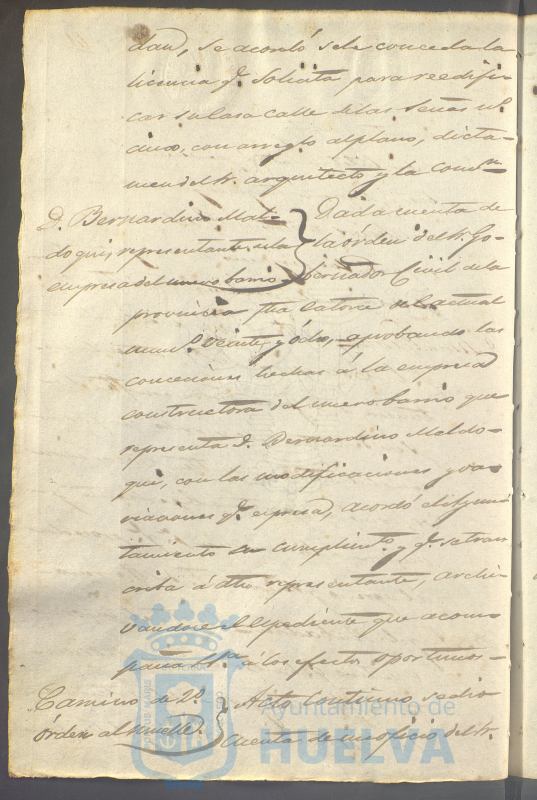 dad, se acordó se le conceda la
licencia q.e solicita para reedifi-
car su casa calle de las Señas n.o
cinco, con arreglo al plano, dicta-
men del Sr. arquitecto y la Com.on
D. Bernardino Mal-
doqui, representante de la
empresa del nuevo barrio
Dada cuenta de
la órden del Sr. Go-
bernador Civil de la
provincia fha catorce del actual
num.o veinte y ocho, aprobando las
concesiones hechas á la empresa
constructora del nuevo barrio que
representa D. Bernardino Maldo-
qui, con las modificaciones y va-
riaciones q.e espresa, acordó el Ayun-
tamiento su cumplim.to y q.e se trans-
criba á dho representante, archi-
vandose el espediente que acom-
paña p.a á los efectos oportunos-
Camino de 2.o
órden al Muelle.
Acto continuo se dio
cuenta de un oficio del Sr.
Ayuntamiento de
HUELVA